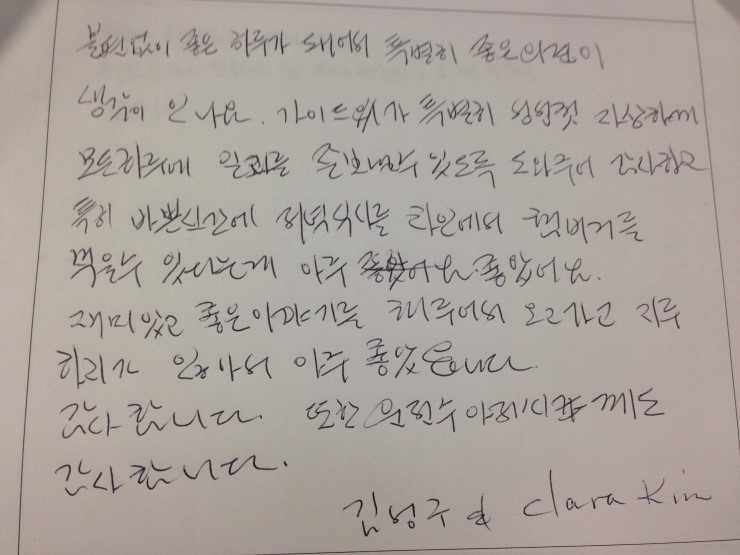 불편없이 좋은 하루가 되어서 특별히 좋은의견이
생각이 안 나요. 가이드 가 특별히 자상하게
모든하루에 일과를 도와주어 감사하고
특히 바쁜시간에 저녁식사를 차안에서 햄버거를
먹을수 있다는게 아주 좋았어요.
재미있고 좋은이야기를 해주어서 오고가고 지루
하지가 않아서 아주 좋았습니다
감사합니다. 또한 운전수아저씨 께도
감사합니다.
김영구 & Clara Kim